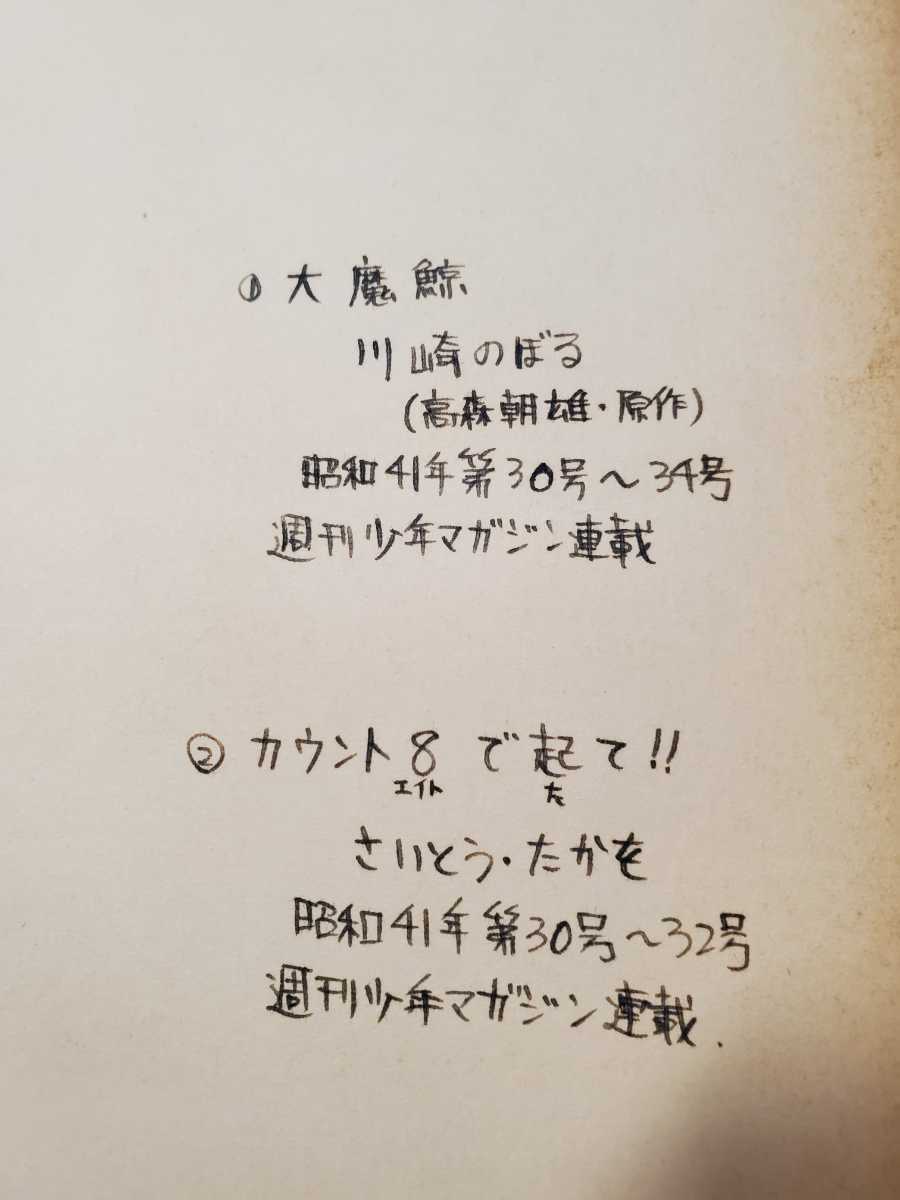 ① 大魔鯨
川崎のぼる
(高森朝雄・原作)
昭和41年第30号〜34号
週刊少年マガジン連載
② カウント8で起て!!
エイト た
さいとう・たかを
昭和41年第30号〜32号
週刊少年マガジン連載.